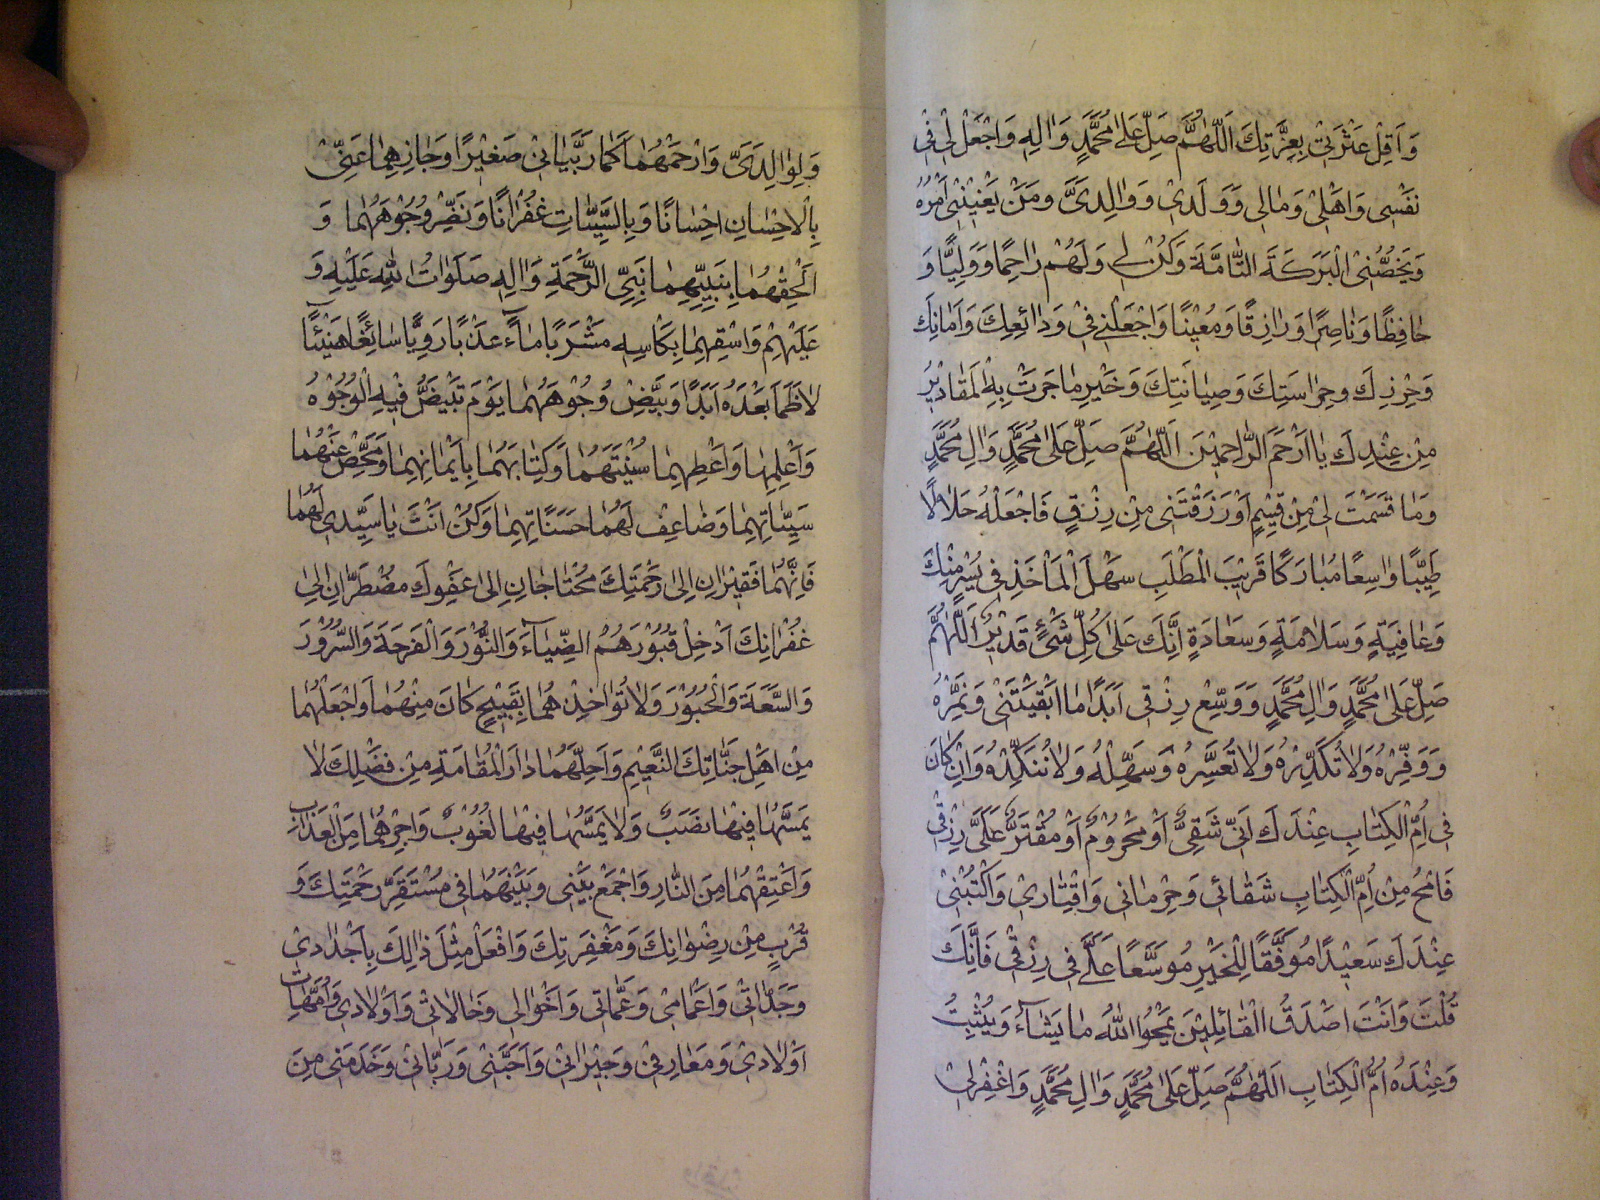 وَاَقِلْ عَثْرَتِيْ بِعِزَّتِكَ اَللّٰهُمَّ صَلِّ عَلىٰ مُحَمَّدٍ وَاٰلِهٖ وَاجْعَلْ لِيْ فِيْ
نَفْسِى وَاَهْلِيْ وَمَالِى وَوَلَدِيْ وَوَالِدَىَّ وَمَنْ يَعْنِيْنِىْ اَمْرُهُ
وَيَخُصُّنِىْ الْبَرَكَةَ التَّامَّةَ وَكُنْ لِى وَلَهُمْ رَاحِمًا وَوَلِيًّا وَ
حَافِظًا وَنَاصِرًا وَرَازِقًا وَمُعِيْنًا وَاجْعَلْنِىْ فِىْ وَدَائِعِكَ وَاَمَانِكَ
وَحِرْزِكَ وَحِرَاسَتِكَ وَصِيَانَتِكَ وَخَيْرِ مَا جَرَتْ بِهِ الْمَقَادِيْرُ
مِنْ عِنْدِكَ يَا اَرْحَمَ الرَّاحِمِيْنَ اَللّٰهُمَّ صَلِّ عَلىٰ مُحَمَّدٍ وَاٰلِ مُحَمَّدٍ
وَمَا قَسَمْتَ لِىْ مِنْ قِسْمٍ اَوْ رَزَقْتَنِى مِنْ رِزْقٍ فَاجْعَلْهُ حَلَالًا
طَيِّبًا وَاسِعًا مُبَارَكًا قَرِيْبَ الْمَطْلَبِ سَهْلَ الْمَأْخَذِ فِى يُسْرٍ مِنْكَ
وَعَافِيَةٍ وَسَلَامَةٍ وَسَعَادَةٍ اِنَّكَ عَلىٰ كُلِّ شَىْءٍ قَدِيْرٌ اَللّٰهُمَّ
صَلِّ عَلىٰ مُحَمَّدٍ وَاٰلِ مُحَمَّدٍ وَوَسِّعْ رِزْقِى اَبَدًا مَا اَبْقَيْتَنِىْ وَثَمِّرْهُ
وَوَفِّرْهُ وَلَا تُكَدِّرْهُ وَلَا تُعَسِّرْهُ وَسَهِّلْهُ وَلَا تُنَكِّدْهُ وَاِنْ كَانَ
فِى اُمِّ الْكِتَابِ عِنْدَكَ اَنِّىْ شَقِىٌّ اَوْ مَحْرُوْمٌ اَوْ مُقْتَرٌّ عَلَىَّ رِزْقِى
فَامْحُ مِنْ اُمِّ الْكِتَابِ شَقَائِى وَحِرْمَانِى وَاِقْتَارِىْ وَاكْتُبْنِىْ
عِنْدَكَ سَعِيْدًا مُوَفَّقًا لِلْخَيْرِ مُوَسَّعًا عَلَىَّ فِى رِزْقِىْ فَاِنَّكَ
قُلْتَ وَاَنْتَ اَصْدَقُ الْقَائِلِيْنَ يَمْحُوا اللّٰهُ مَا يَشَآءُ وَيُثْبِتُ
وَعِنْدَهُ اُمُّ الْكِتَابِ اَللّٰهُمَّ صَلِّ عَلىٰ مُحَمَّدٍ وَاٰلِ مُحَمَّدٍ وَاغْفِرْلِىْ
وَلِوَالِدَىَّ وَارْحَمْهُمَا كَمَا رَبَّيَانِىْ صَغِيْرًا وَجَازِهِمَا عَنِّىْ
بِالْاِحْسَانِ اِحْسَانًا وَبِالسَّيِّئَاتِ غُفْرَانًا وَنَضِّرْ وُجُوْهَهُمَا وَ
اَلْحِقْهُمَا بِنَبِيِّهِمَا نَبِىِّ الرَّحْمَةِ وَاٰلِهٖ صَلَوَاتُ اللّٰهِ عَلَيْهِ وَ
عَلَيْهِمْ وَاسْقِهِمَا بِكَاْسِهٖ مَشْرَبًا مَآءً عَذْبًا رَوِيًّا سَائِغًا هَنِيْئًا
لَا ظَمَأَ بَعْدَهُ اَبَدًا وَبَيِّضْ وُجُوْهَهُمَا يَوْمَ تَبْيَضُّ فِيْهِ الْوُجُوْهُ
وَاَعْلِهِمَا وَاَعْطِهِمَا سُنْيَتَهُمَا وَكِتَابَهُمَا بِاَيْمَانِهِمَا وَمَحِّصْ عَنْهُمَا
سَيِّئَاتِهِمَا وَضَاعِفْ لَهُمَا حَسَنَاتِهِمَا وَكُنْ اَنْتَ يَا سَيِّدِى لَهُمَا
فَاِنَّهُمَا فَقِيْرَانِ اِلىٰ رَحْمَتِكَ مُحْتَاجَانِ اِلىٰ عَفْوِكَ مُضْطَرَّانِ اِلىٰ
غُفْرَانِكَ اَدْخِلْ قُبُوْرَهُمُ الضِّيَآءَ وَالنُّوْرَ وَالْفَرْحَةَ وَالسُّرُوْرَ
وَالسَّعَةَ وَالْحُبُوْرَ وَلَا تُوَاخِذْهُمَا بِقَبِيْحٍ كَانَ مِنْهُمَا وَاجْعَلْهُمَا
مِنْ اَهْلِ جَنَّاتِكَ النَّعِيْمِ وَاَحِلَّهُمَا دَارَ الْمُقَامَةِ مِنْ فَضْلِكَ لَا
يَمَسُّهُمَا فِيْهَا نَصَبٌ وَلَا يَمَسُّهُمَا فِيْهَا لُغُوْبٌ وَاَجِرْهُمَا مِنَ الْعَذَابِ
وَاَعْتِقْهُمَا مِنَ النَّارِ وَاجْمَعْ بَيْنِى وَبَيْنَهُمَا فِى مُسْتَقَرِّ رَحْمَتِكَ وَ
قُرْبٍ مِنْ رِضْوَانِكَ وَمَغْفِرَتِكَ وَافْعَلْ مِثْلَ ذٰلِكَ بِاَجْدَادِىْ
وَجَدَّاتِىْ وَاَعْمَامِىْ وَعَمَّاتِى وَاَخْوَالِى وَخَالَاتِىْ وَاَوْلَادِىْ وَاُمَّهَاتِ
اَوْلَادِىْ وَمَعَارِفِىْ وَجِيْرَانِىْ وَاَحَبَّنِىْ وَرَبَّانِىْ وَخَدَمَنِىْ مِنَ